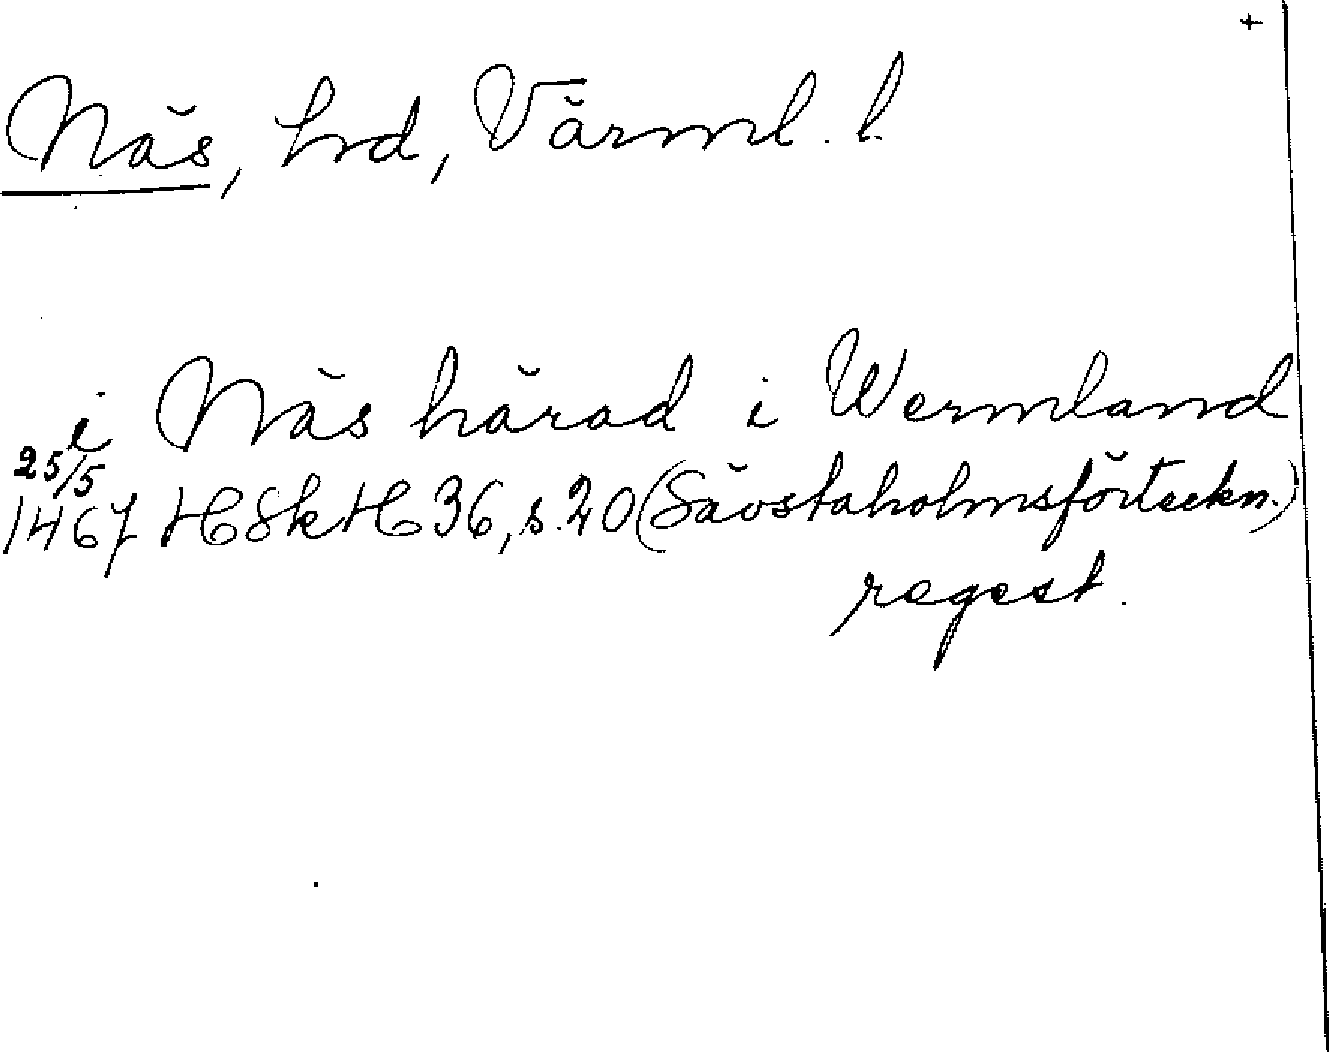 +
Näs, hd, Värml. l.
i Näs härad i Wermland
25/5
1467 HSkH 36, s. 20 (Sävstaholmsförteckn.)
regest.